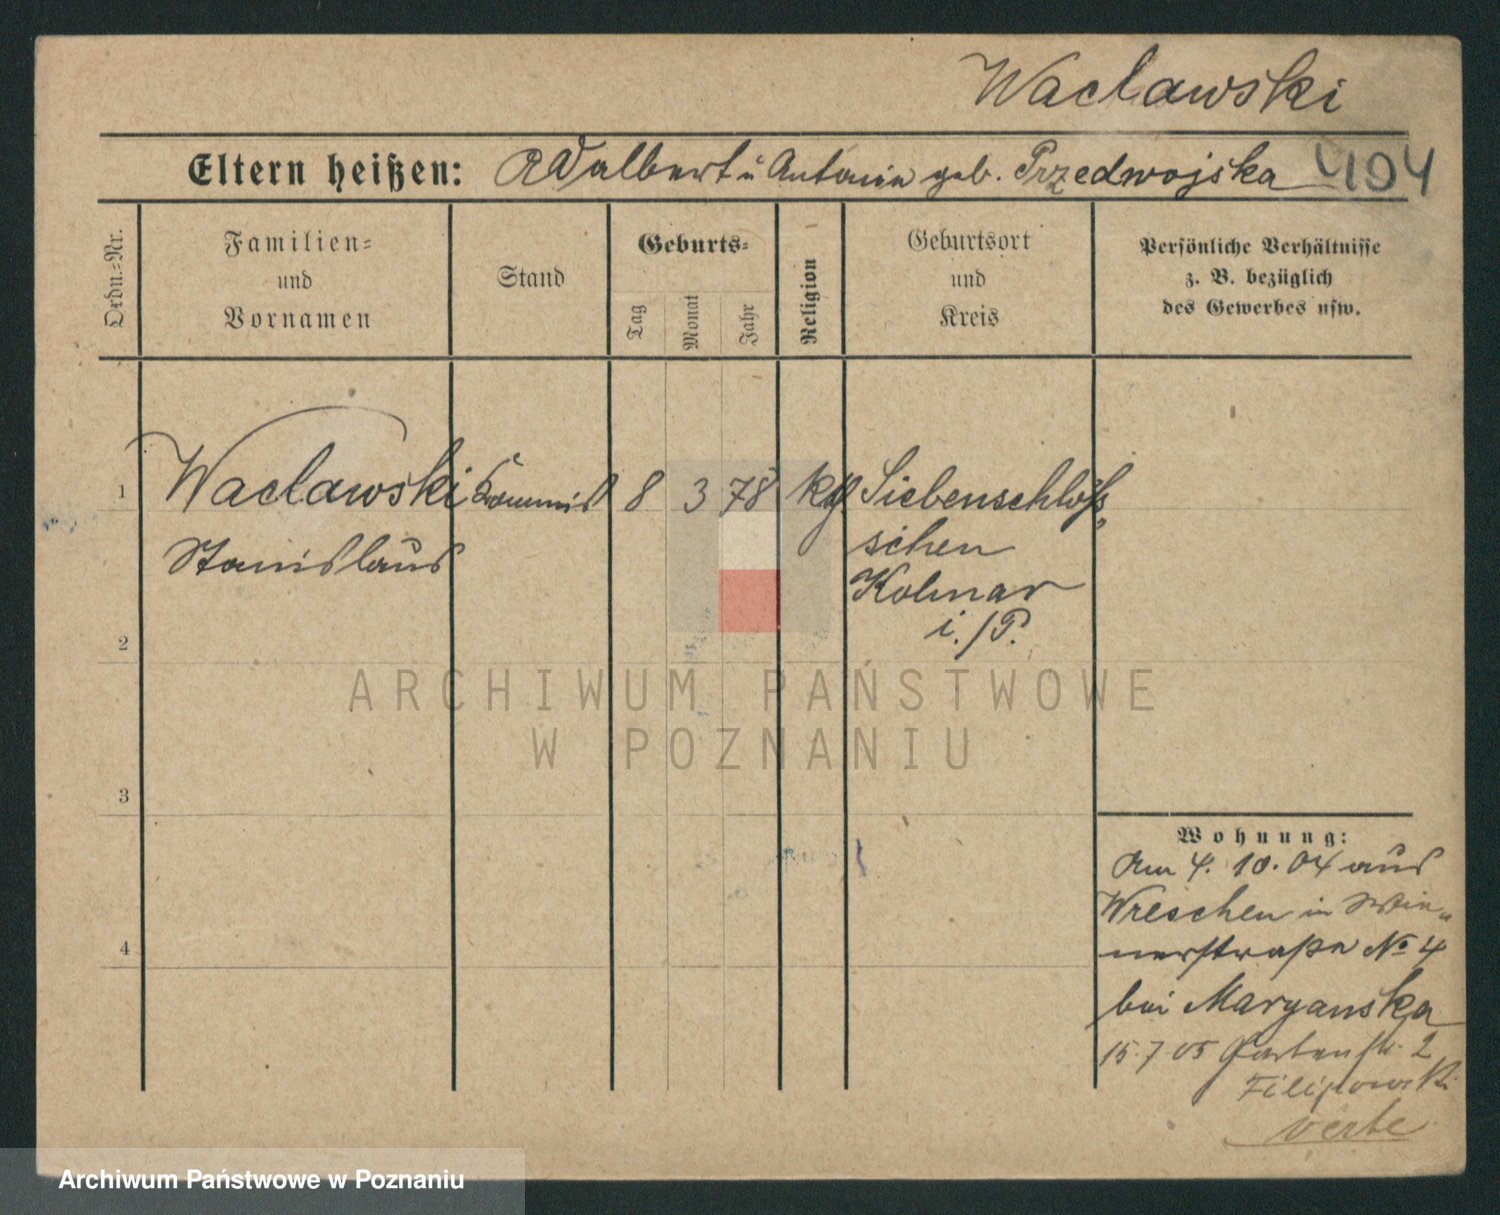 Waclawski
Eltern heißen: Adalbert u Antonin geb. Przedwojska
494
Ordn.-Nr.
Familien-
und
Vornamen
Stand
Geburts-
Tag
Monat
Jahr
Religion
Geburtsort
und
Kreis
Persönliche Verhältnisse
z. B. bezüglich
des Gewerbes usw.
1
Waclawski Kommis 8 3 78 kth Siebenschlöß
Stanislaus
schen
Kolmar
i./P.
2
3
4
Wohnung:
Am 4. 10. 04 aus
Wreschen in Wie-
nerstraße No 4
bei Maryanska
15.7 05 Gartenstr. 2
Filipowski
verte
ARCHIWUM PAŃSTWOWE
W POZNANIU
Archiwum Państwowe w Poznaniu